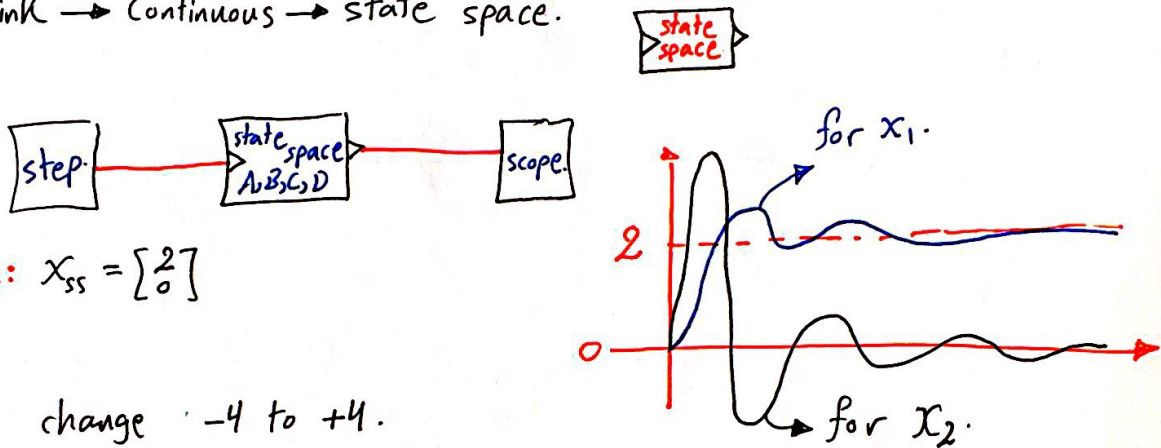 ink → Continuous → state space.
state
space
for x₁.
step.
state
space
A,B,C,D
scope.
2
: X_ss = [2 0]
0
change -4 to +4.
for X₂.